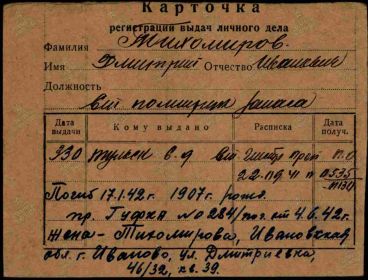 Карточка
регистрации выдач личного дела
Фамилия Тихомиров.
Имя Дмитрий Отчество Иванович
Должность
в/т политрук запаса
Дата выдачи Кому выдано Расписка Дата получ.
330
22-09 41 п 0535
Погиб 17.1.42г. 1907г. рожд.
пр. ГУФКА № 0284/пог. от 4.6.42г.
Жена - Тихомирова, Ивановская
обл. г. Иваново, ул. Дмитриевка,
46/32, кв. 39.